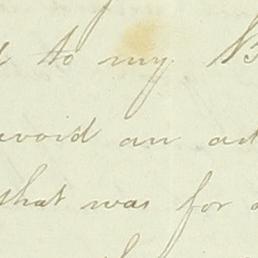 to my
avoid an
that was for